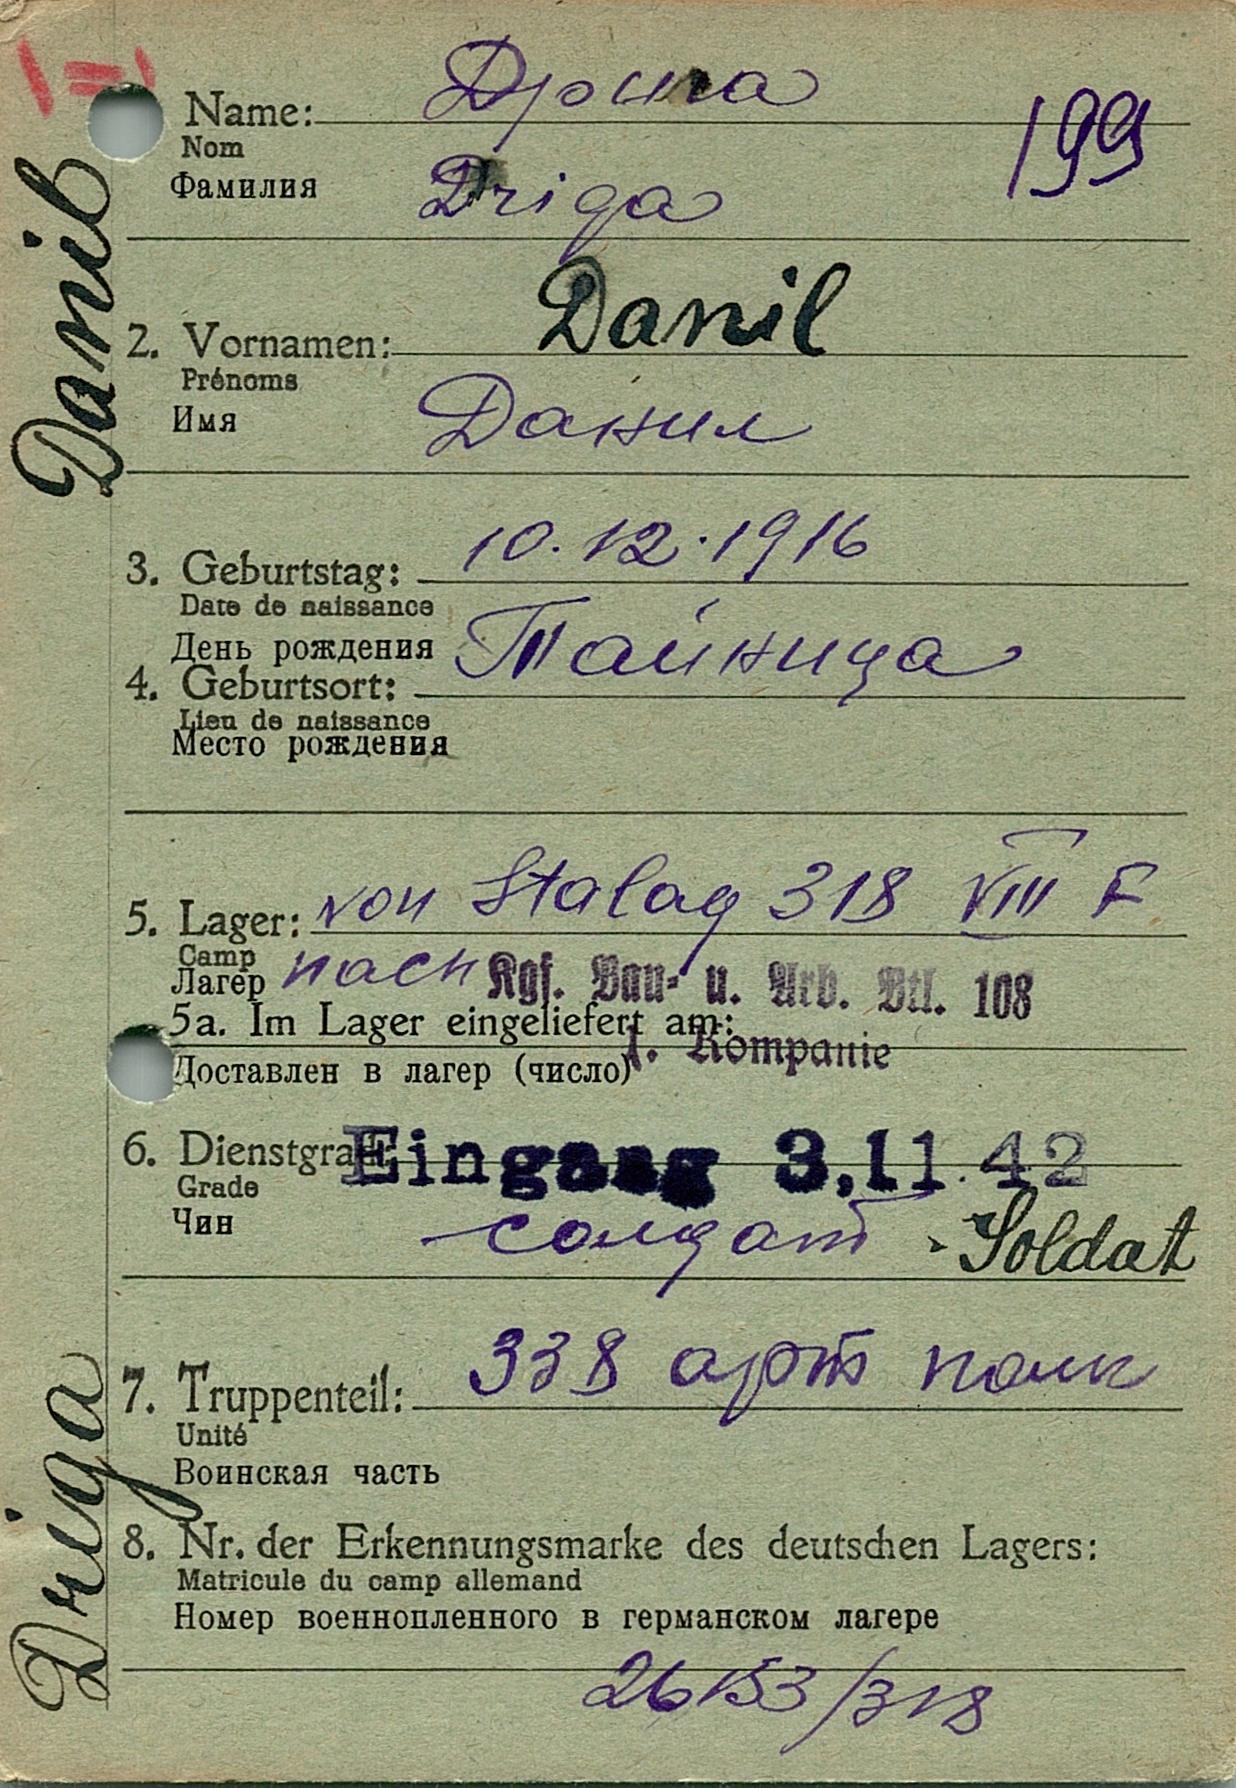 Name:
Nom
Фамилия
Driga
199
Danil
2. Vornamen: Danil
Prénoms
Имя Данил
3. Geburtstag: 10.12.1916
Date de naissance
День рождения
4. Geburtsort: Тайница
Lieu de naissance
Место рождения
5. Lager: von Stalag 318 VIII F
Camp
Лагер nach Kgf. Bau- u. Arb. Btl. 108
5a. Im Lager eingeliefert am:
1. Kompanie
Доставлен в лагер (число)
6. Dienstgrad: Eingang 3.11.42
Grade
Чин солдат - Soldat
7. Truppenteil: 338 арт полк
Unité
Воинская часть
Driga
8. Nr. der Erkennungsmarke des deutschen Lagers:
Matricule du camp allemand
Номер военнопленного в германском лагере
26153/318